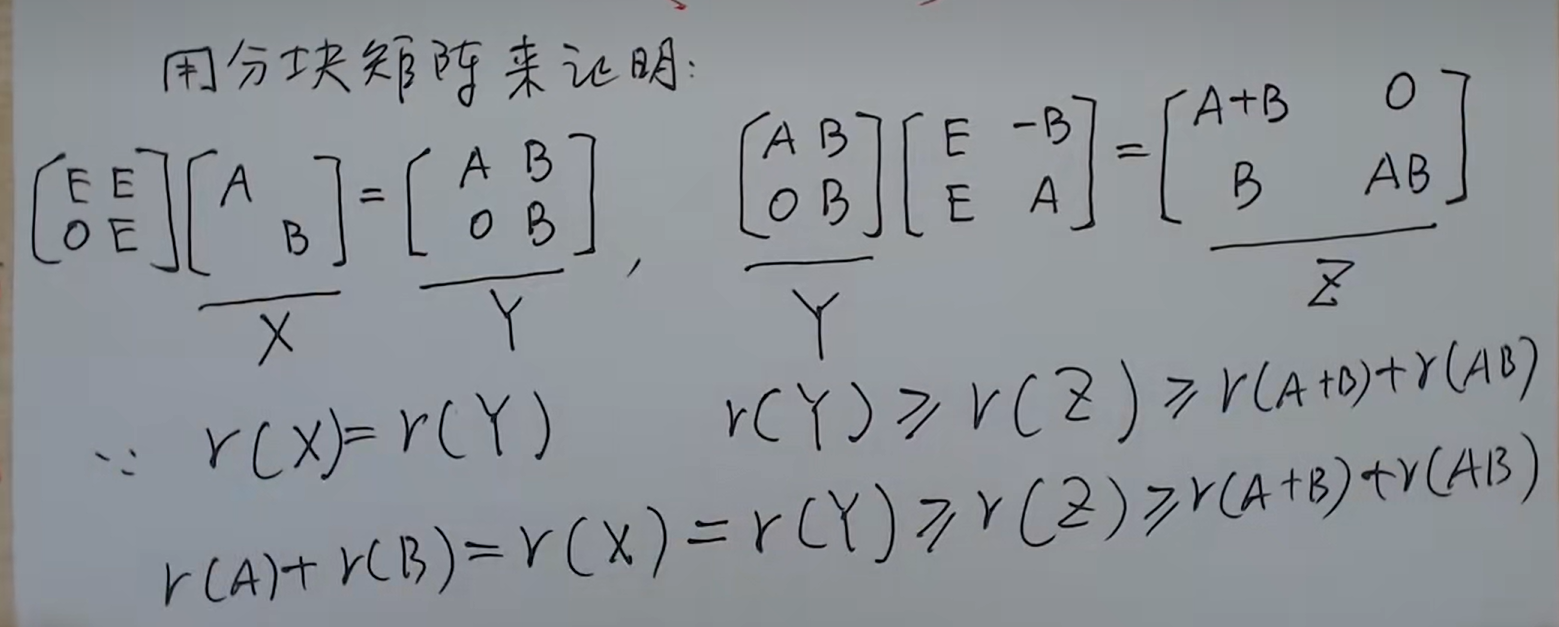 用分块矩阵来证明:
[E E; O E] [A ; B] = [A B; O B] , [A B; O B] [E -B; E A] = [A+B O; B AB]
X Y Y Z
∵ r(X)=r(Y) r(Y)⩾r(Z)⩾r(A+B)+r(AB)
r(A)+r(B)=r(X)=r(Y)⩾r(Z)⩾r(A+B)+r(AB)